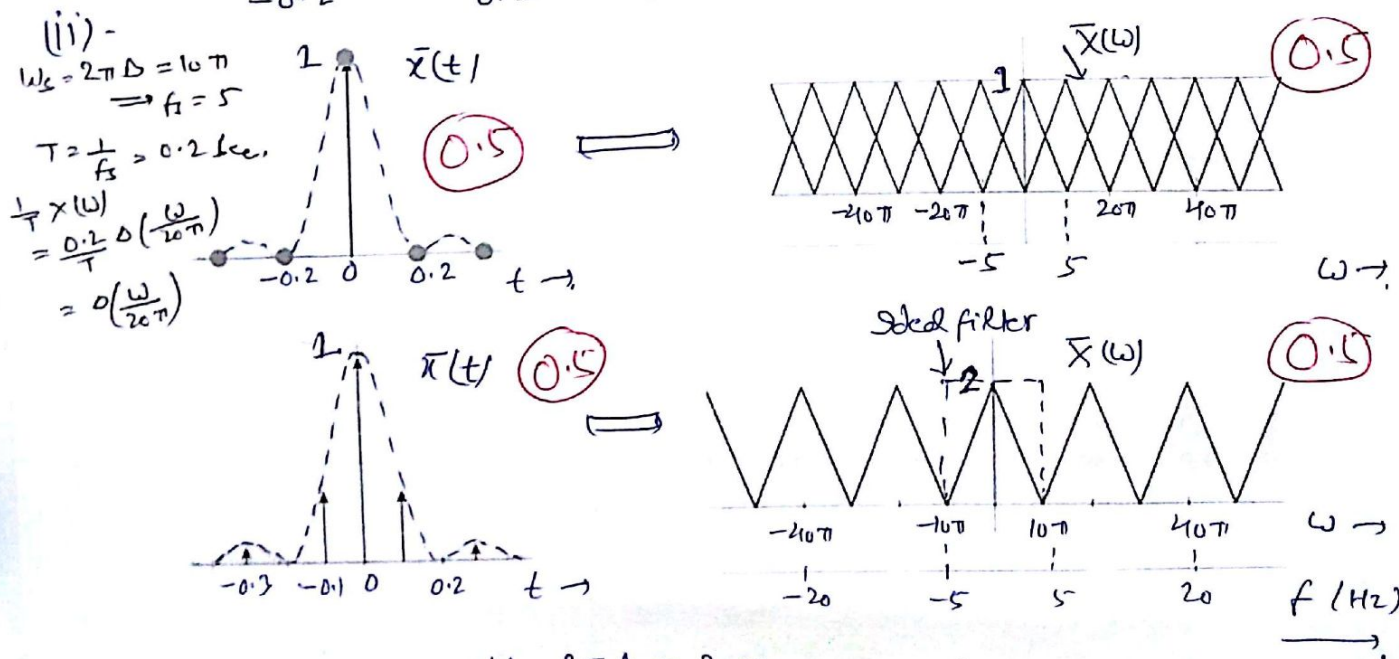 (ii) -
Ws = 2πΔ = 10π
⟹ fs = 5
T = 1/fs = 0.2 sec.
1/T X(ω)
= 0.2/T Δ(ω/20π)
= Δ(ω/20π)
1 x̄(t)
0.5
-0.2 0 0.2 t →
X̄(ω)
1
0.5
-40π -20π 20π 40π
-5 5
ω →
1 x̄(t) 0.5
-0.3 -0.1 0 0.2 t →
Ideal filter
X̄(ω)
2
0.5
-40π -10π 10π 40π ω →
-20 -5 5 20 f (Hz)